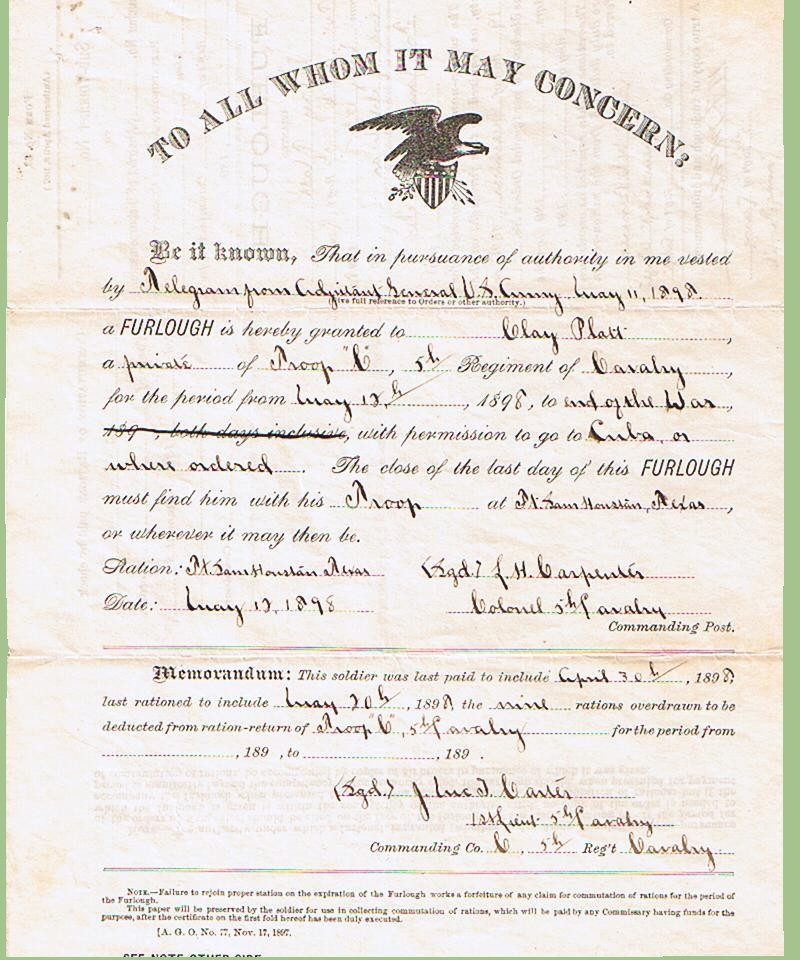 TO ALL WHOM IT MAY CONCERN:
Be it known, That in pursuance of authority in me vested
by Telegram from Adjutant General U.S. Army May 11, 1898.
(Give full reference to Orders or other authority.)
a FURLOUGH is hereby granted to Clay Platt,
a private of Troop "C", 5th Regiment of Cavalry,
for the period from May 12th, 1898, to end of the War,
189 , both days inclusive, with permission to go to Cuba, or
where ordered. The close of the last day of this FURLOUGH
must find him with his Troop at Ft. Sam Houston, Texas,
or wherever it may then be.
Station: Ft. Sam Houston Texas (Sgd.) L. H. Carpenter
Date: May 12, 1898 Colonel 5th Cavalry
Commanding Post.
Memorandum: This soldier was last paid to include April 30th, 1898;
last rationed to include May 20th, 1898 the nine rations overdrawn to be
deducted from ration-return of Troop "C", 5th Cavalry for the period from
, 189 , to , 189 .
(Sgd.) J. McI. T. Carter
1st Lieut. 5th Cavalry
Commanding Co. C, 5th Reg't Cavalry
NOTE.—Failure to rejoin proper station on the expiration of the Furlough works a forfeiture of any claim for commutation of rations for the period of
the Furlough.
This paper will be preserved by the soldier for use in collecting commutation of rations, which will be paid by any Commissary having funds for the
purpose, after the certificate on the first fold hereof has been duly executed.
[A. G. O. No. 77, Nov. 17, 1897.
SEE NOTE OTHER SIDE